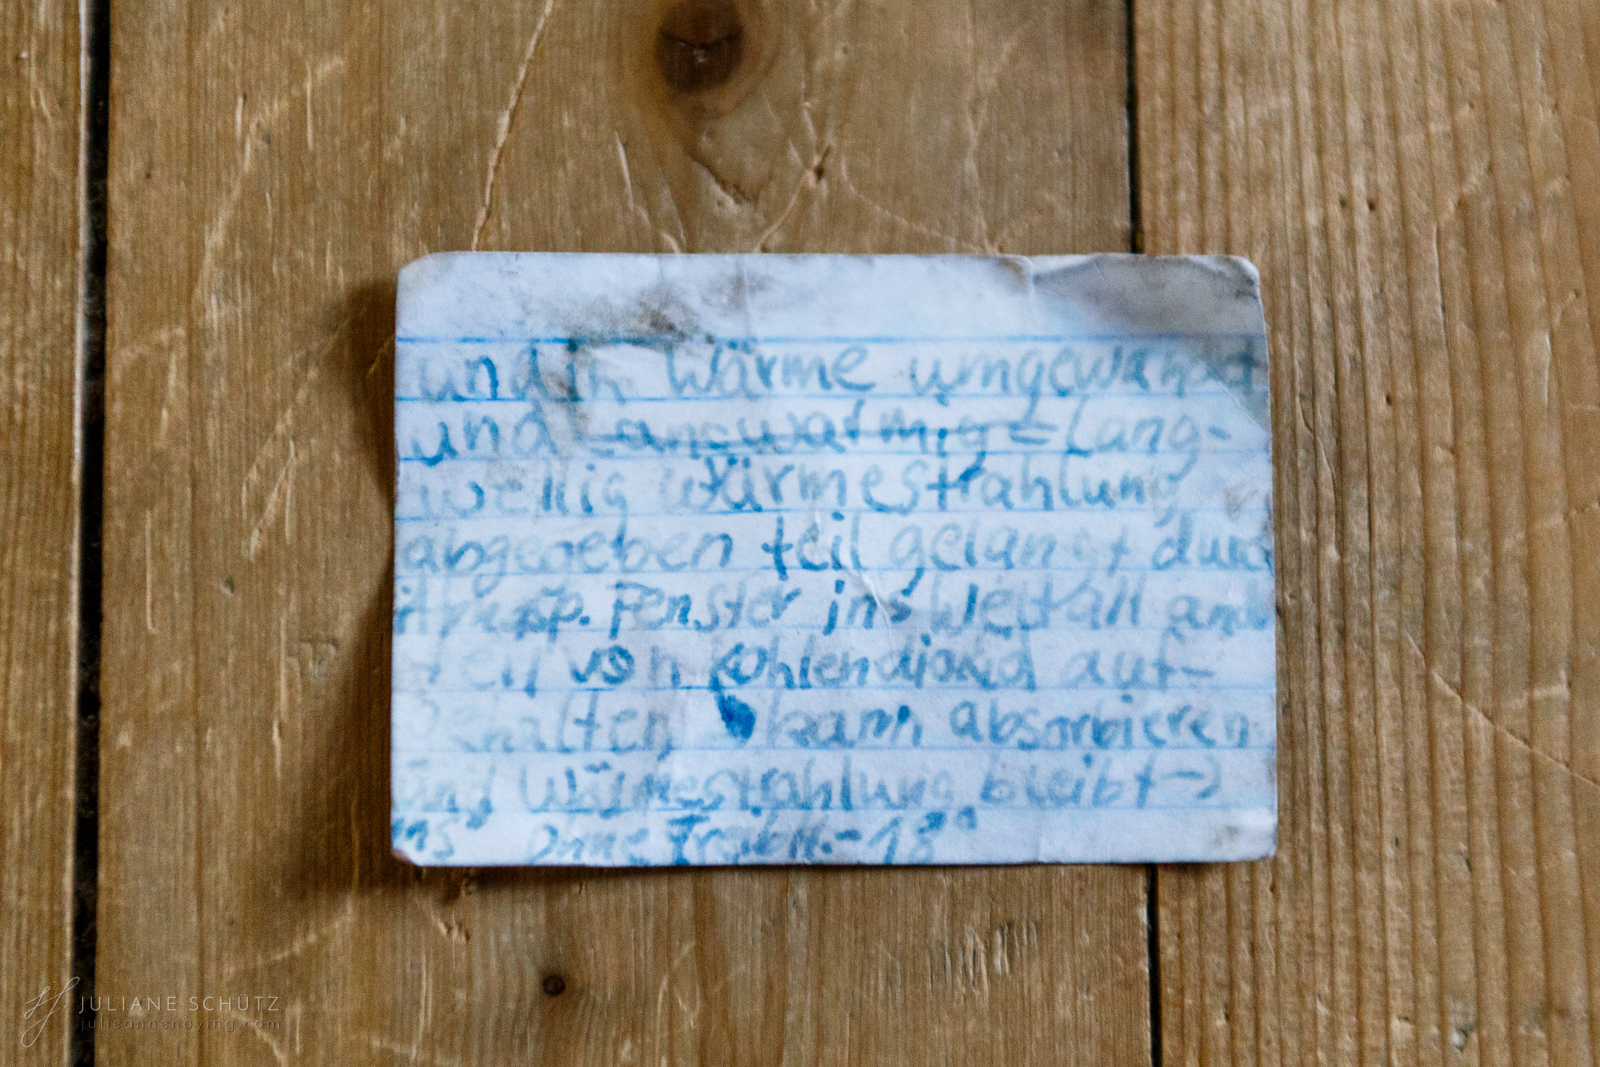 und in Wärme umgewandelt
und Langwarmig = Lang-
wellig Wärmestrahlung
abgegeben teil gelangt durch
Atmosp. Fenster ins Weltall and
teil von Kohlendioxid auf-
gehalten, kann absorbieren
und Wärmestrahlung bleibt ->
Ohne Treibh. -18°
JULIANE SCHÜTZ
julieannenoying.com